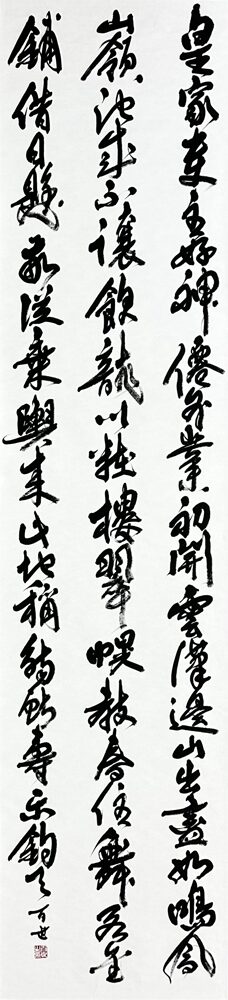 皇家貴主好神僊別業初開雲漢邊山出盡如鳴鳳
嶺池成不讓飲龍川粧樓翠幌教春住舞閣金
鋪借日懸敬從乘輿來此地稱觴獻壽樂鈞天